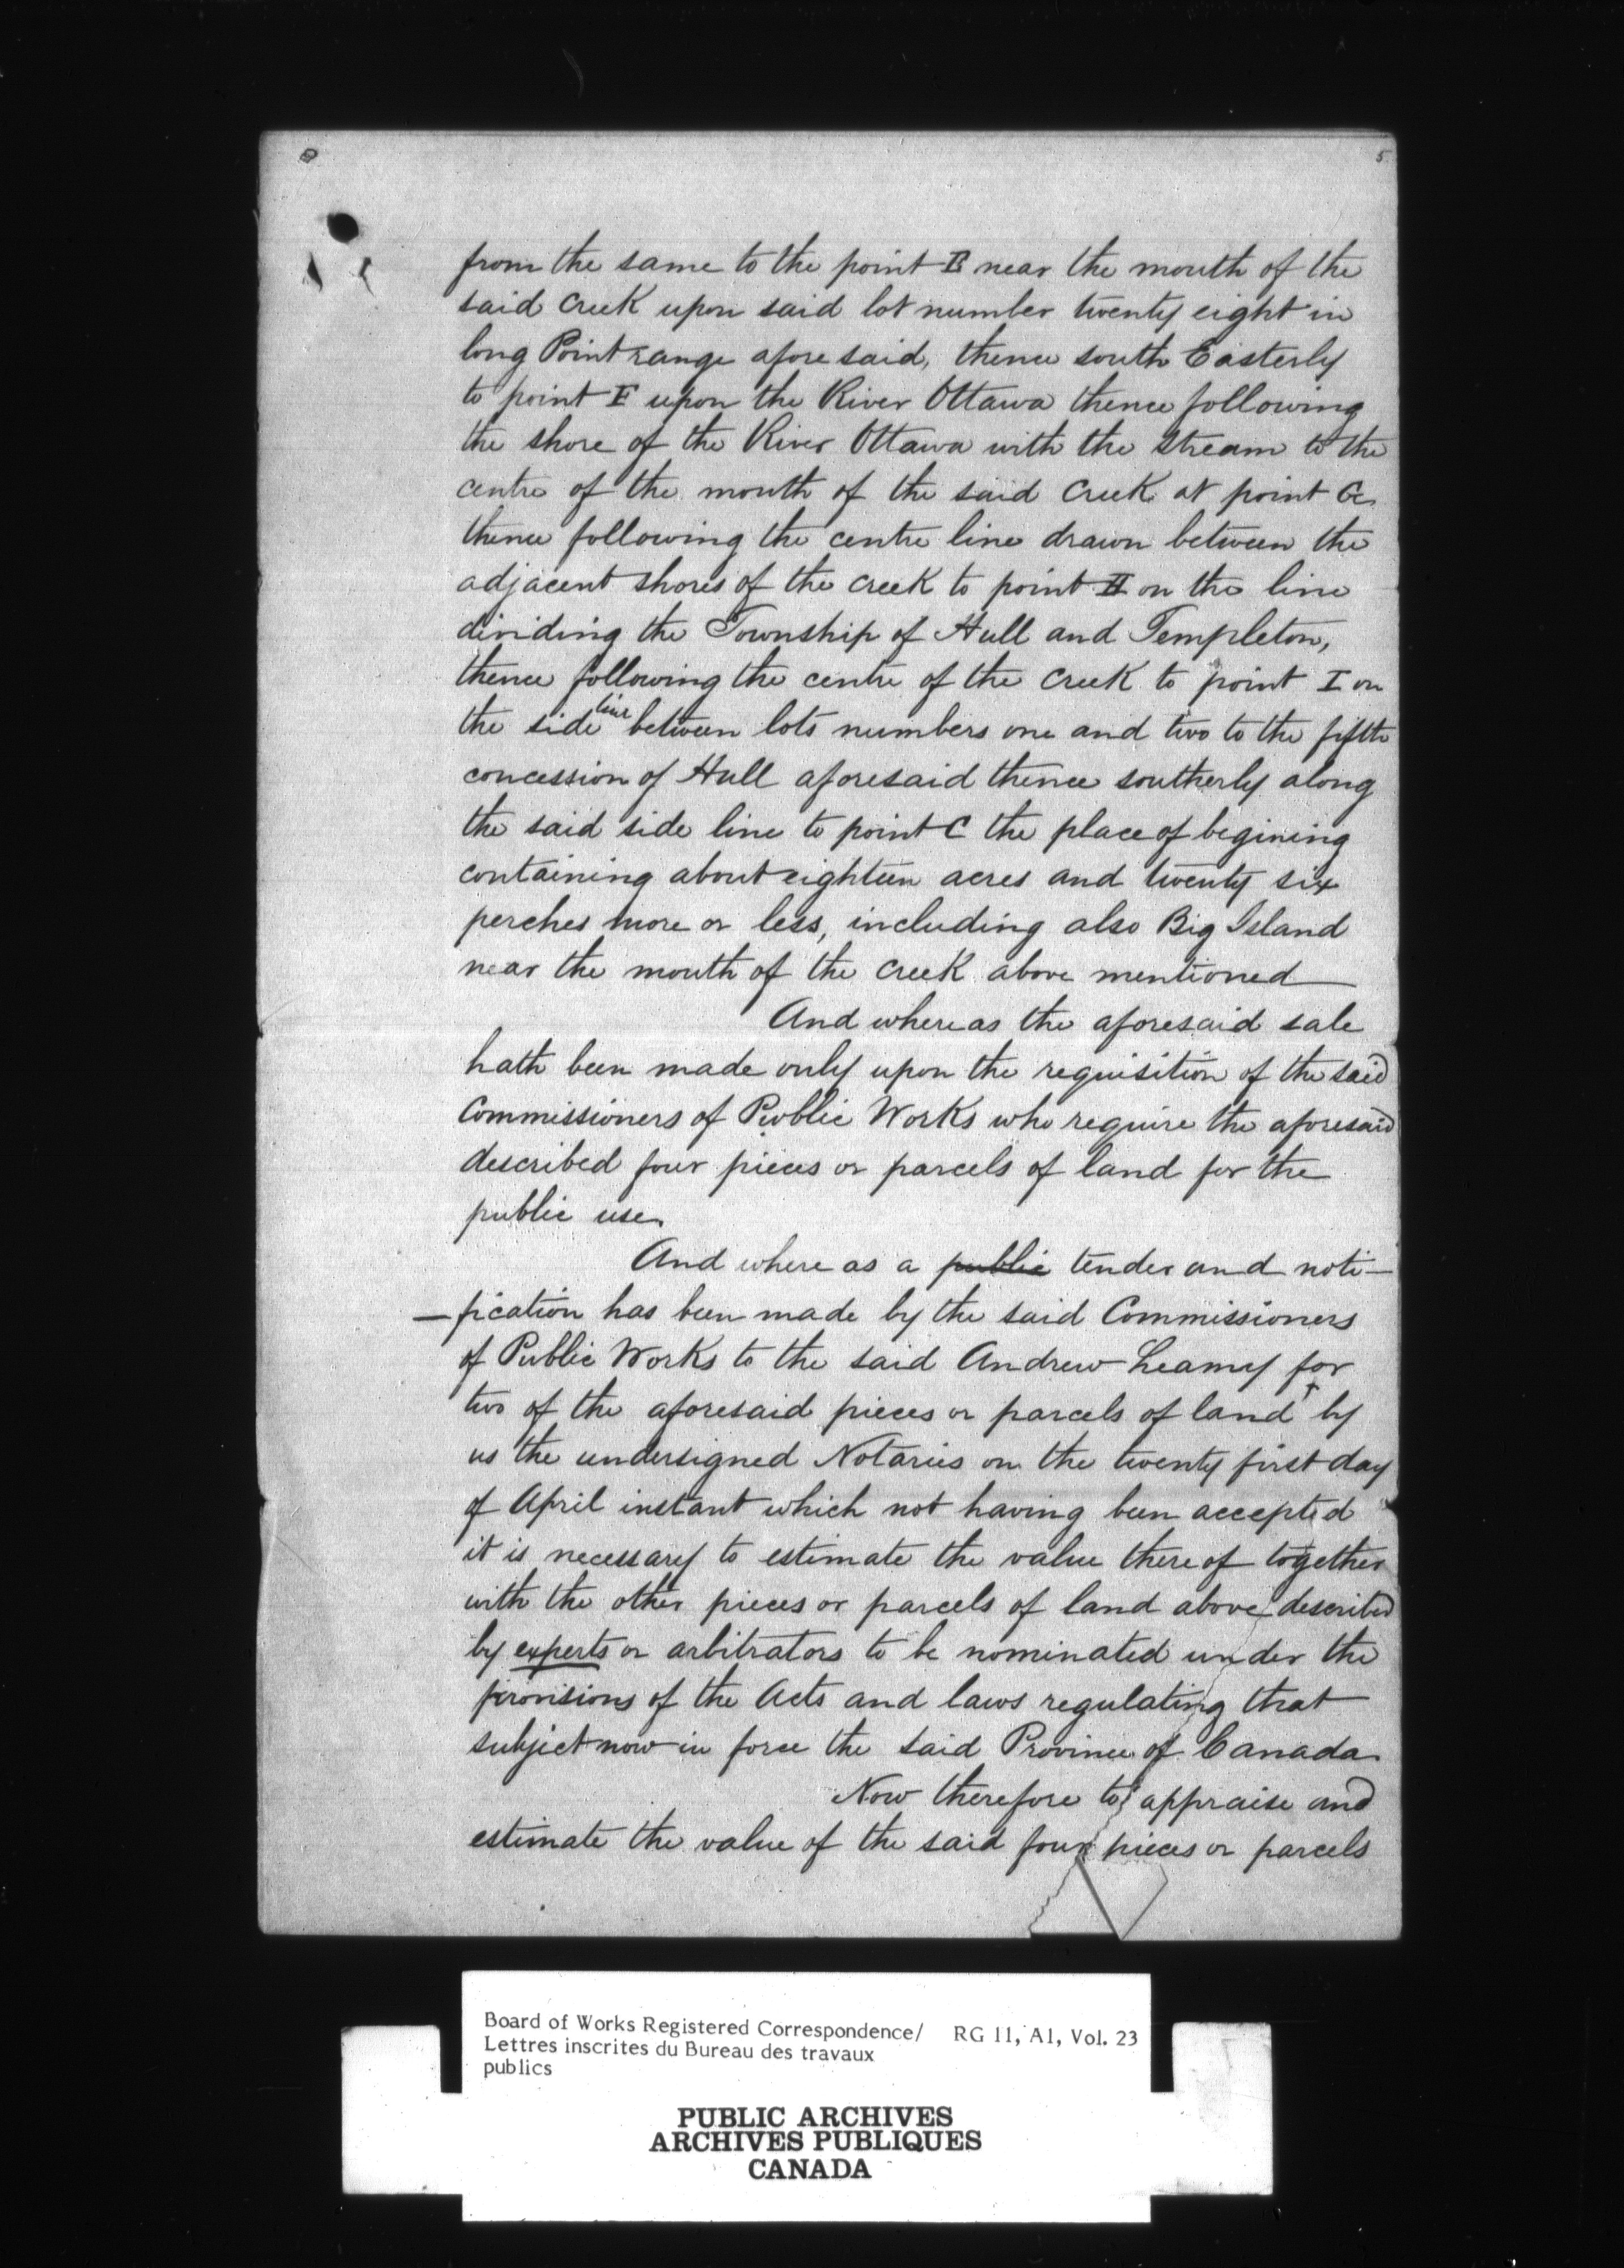 5
from the same to the point E near the mouth of the
said creek upon said lot number twenty eight in
long Point range afore said, thence south Easterly
to point F upon the River Ottawa thence following
the shore of the River Ottawa with the stream to the
centre of the mouth of the said creek at point G
thence following the centre line drawn between the
adjacent shores of the creek to point H on the line
dividing the Township of Hull and Templeton,
thence following the centre of the creek to point I on
the side line between lots numbers one and two to the fifth
concession of Hull aforesaid thence southerly along
the said side line to point C the place of begining
containing about eighteen acres and twenty six
perches more or less, including also Big Island
near the mouth of the creek above mentioned
And where as the aforesaid sale
hath been made only upon the requisition of the said
Commissioners of Public Works who require the aforesaid
described four pieces or parcels of land for the
public use
And where as a public tender and noti-
-fication has been made by the said Commissioners
of Public Works to the said Andrew Leamy for
two of the aforesaid pieces or parcels of land by
us the undersigned Notaries on the twenty first day
of April instant which not having been accepted
it is necessary to estimate the value there of together
with the other pieces or parcels of land above described
by experts or arbitrators to be nominated under the
provisions of the Acts and laws regulating that
subject now in force the said Province of Canada
Now therefore to appraise and
estimate the value of the said four pieces or parcels
Board of Works Registered Correspondence/ RG 11, A1, Vol. 23
Lettres inscrites du Bureau des travaux
publics
PUBLIC ARCHIVES
ARCHIVES PUBLIQUES
CANADA